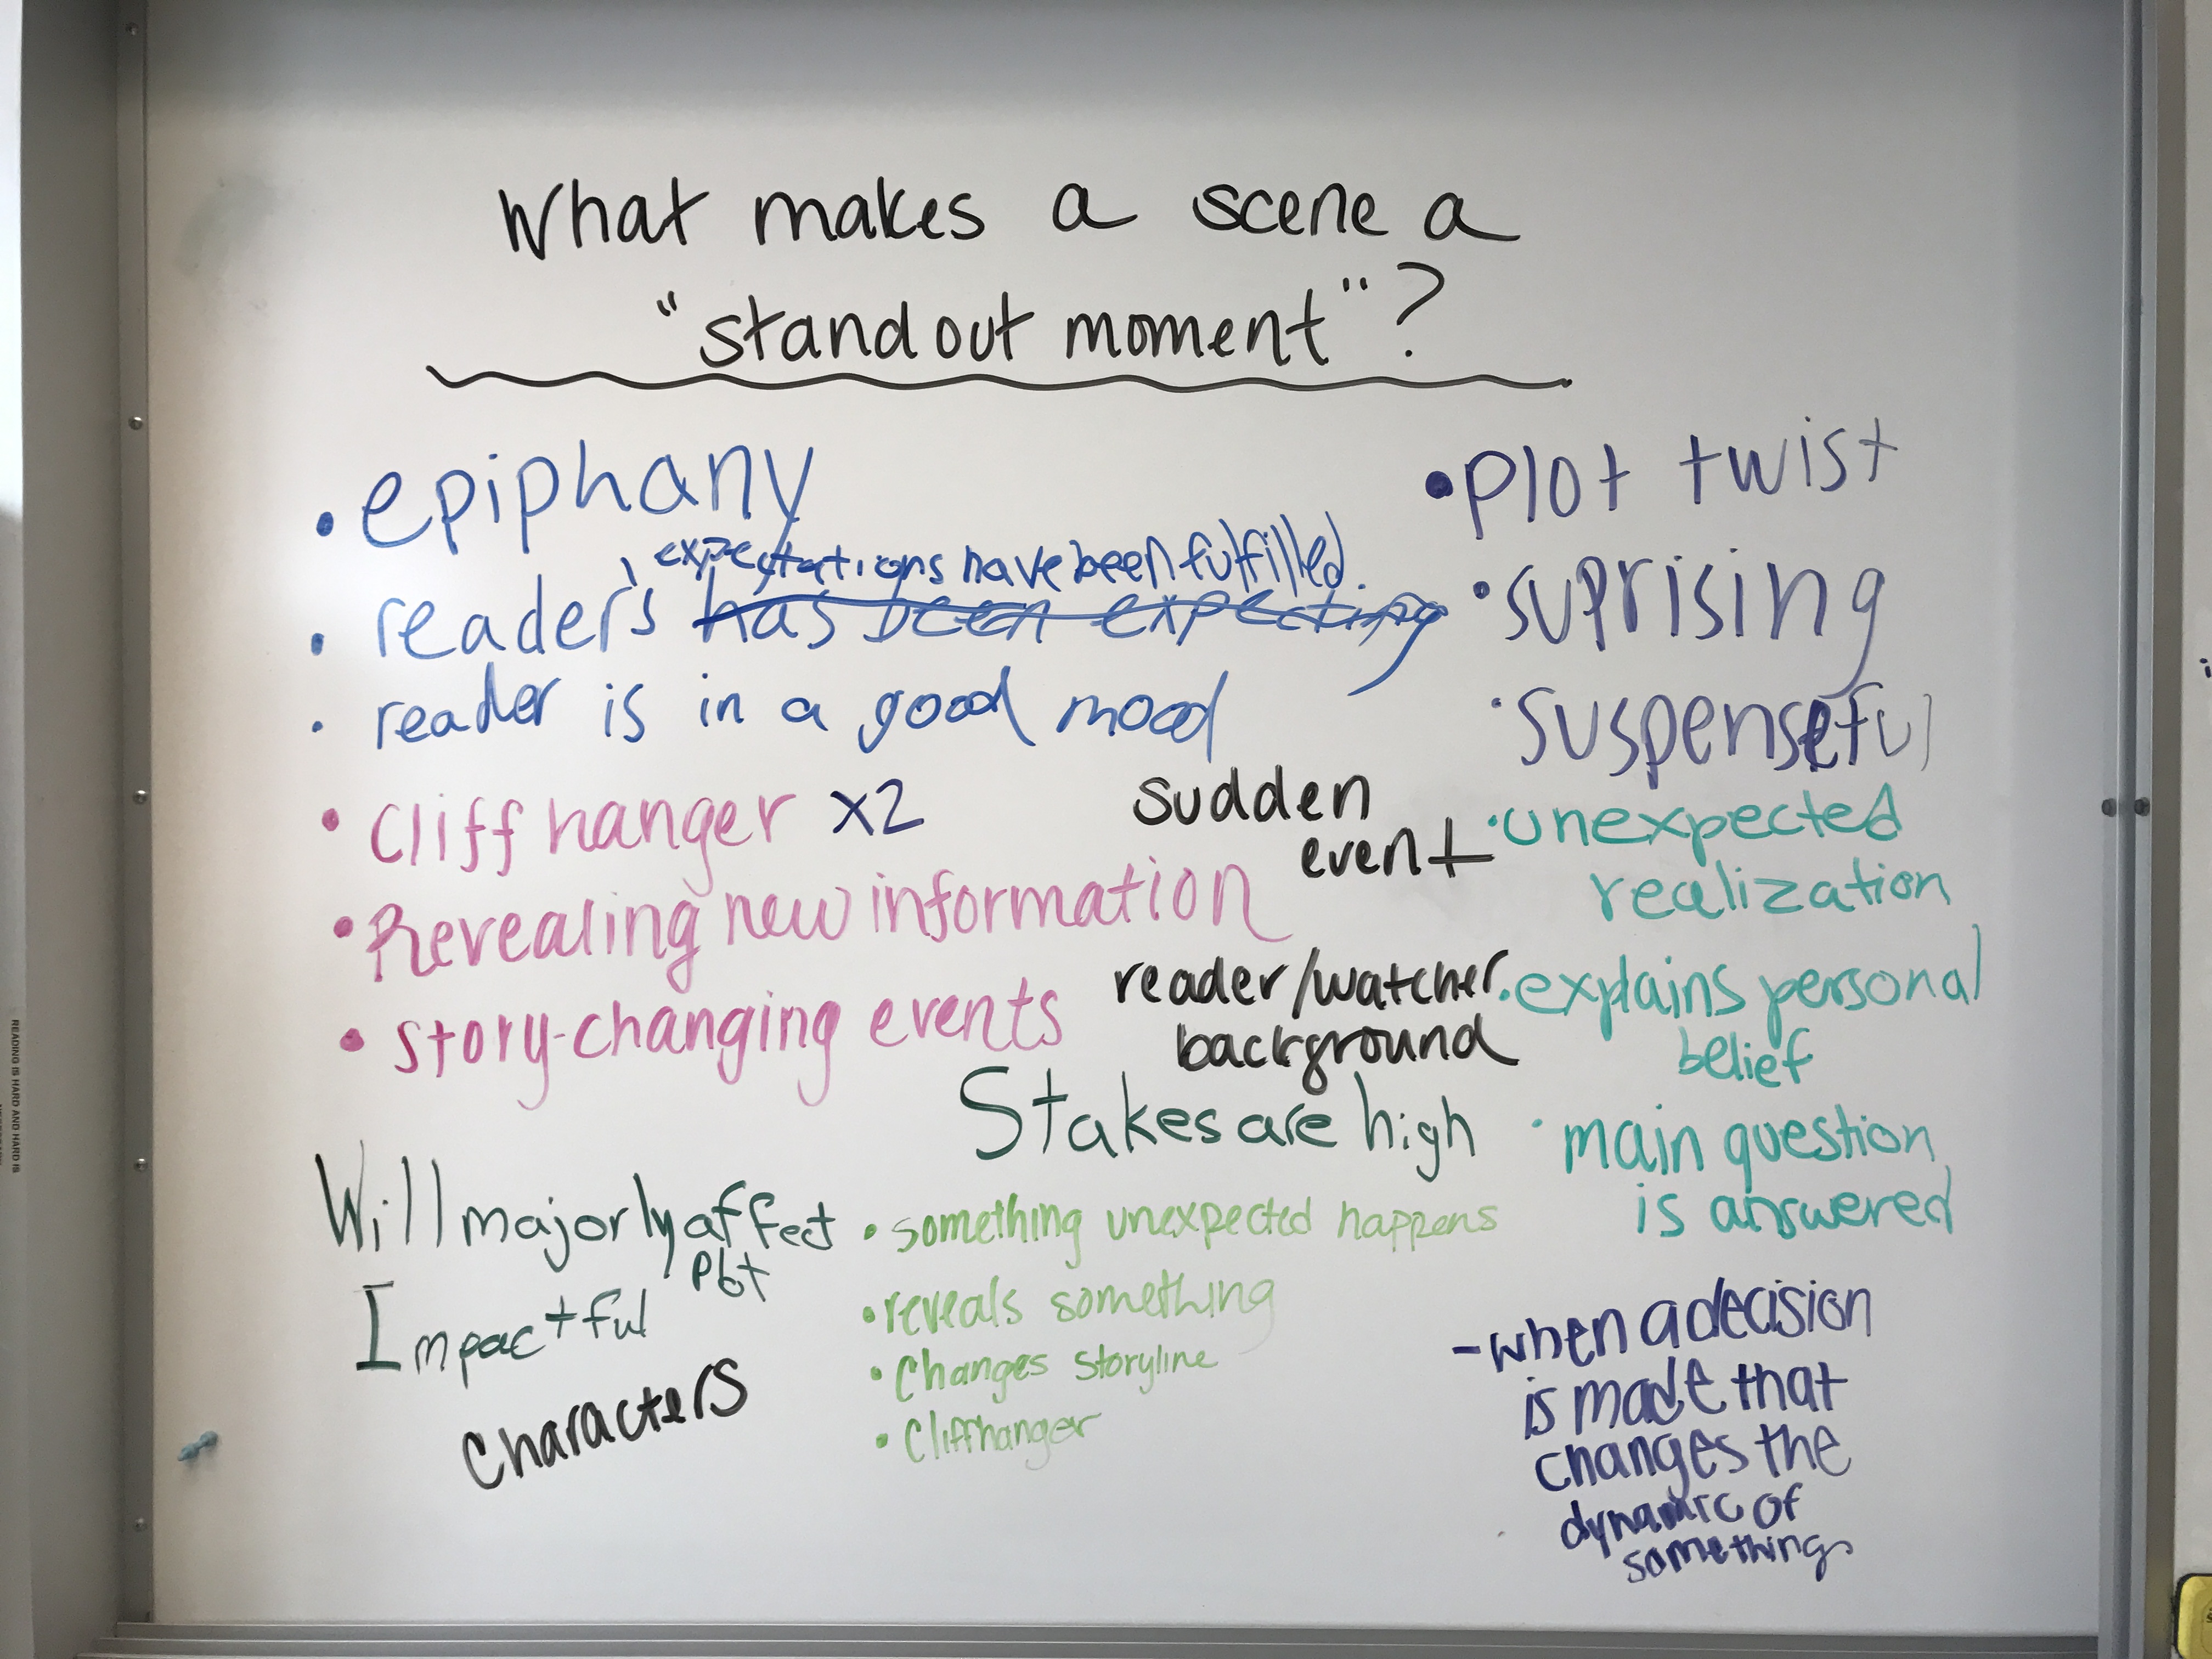 What makes a scene a
"stand out moment"?
• epiphany
expectations have been fulfilled.
• reader's has been expecting
• reader is in a good mood
• Cliff hanger x2
• Revealing new information
• story-changing events
• plot twist
• suprising
• suspenseful
sudden
event
• unexpected
realization
reader/watcher
background
• explains personal
belief
Stakes are high
• main question
is answered
Will majorly affect
plot
Impactful
Characters
• something unexpected happens
• reveals something
• Changes storyline
• Cliffhanger
- when a decision
is made that
changes the
dynamic of
something.
READING IS HARD AND HARD IS